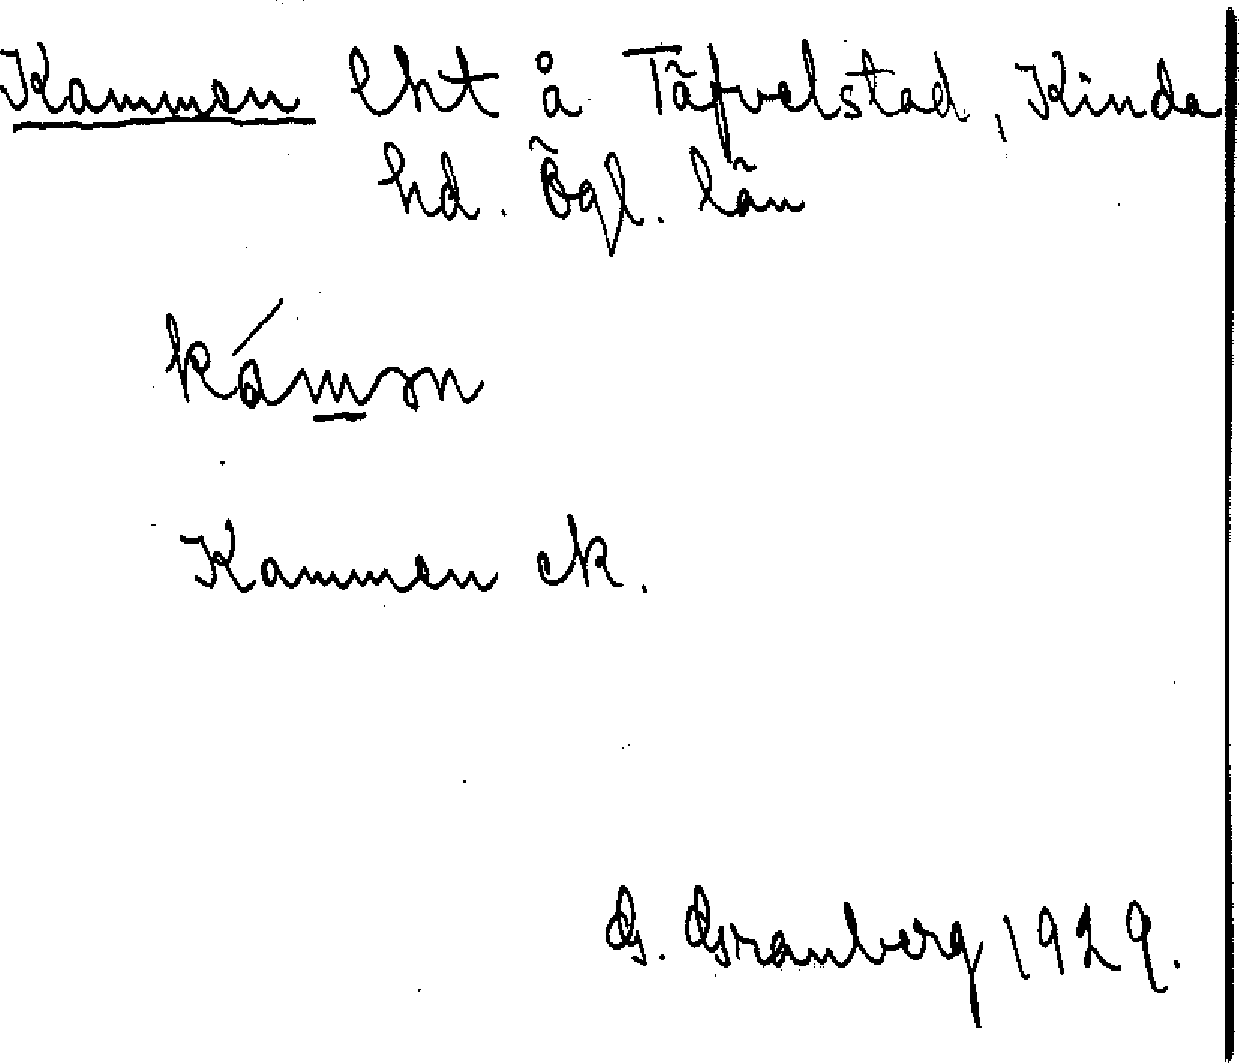 Kammen lht å Täfvelstad, Kinda
hd. Ögl. län
kámən
Kammen ek.
G. Granberg 1929.